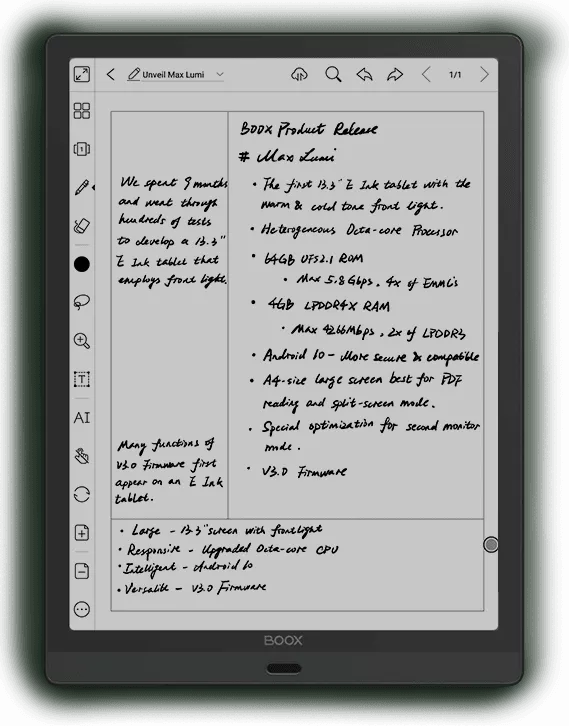 Unveil Max Lumi
1/1
1
T
AI
We spent 9 months
and went through
hundreds of tests
to develop a 13.3"
E Ink tablet that
employs front light.
Many functions of
V3.0 Firmware first
appear on an E Ink
tablet.
BOOX Product Release
# Max Lumi
• The first 13.3" E Ink tablet with the
warm & cold tone front light.
• Heterogeneous Octa-core Processor
• 64GB UFS2.1 ROM
• Max 5.8Gbps, 4x of EMMCs
• 4GB LPDDR4X RAM
• Max 4266Mbps, 2x of LPDDR3
• Android 10 - More secure & compatible
• A4-size large screen best for PDF
reading and split-screen mode.
• Special optimization for second monitor
mode.
• V3.0 Firmware
• Large - 13.3" screen with frontlight
• Responsive - Upgraded Octa-core CPU
• Intelligent - Android 10
• Versatile - V3.0 Firmware
BOOX